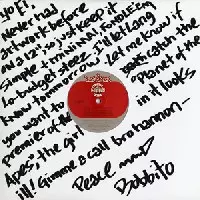 Yo Fi,
Never had
artwork before
on a 12" so just keep it
simple
lo-budget steez. I'll let Lang
know tomorrow. Let me know if
you want to the
premier of the "Planet of the
Apes," the girl in it looks
ill! Gimme a call brohannon-
Peace
Bobbito